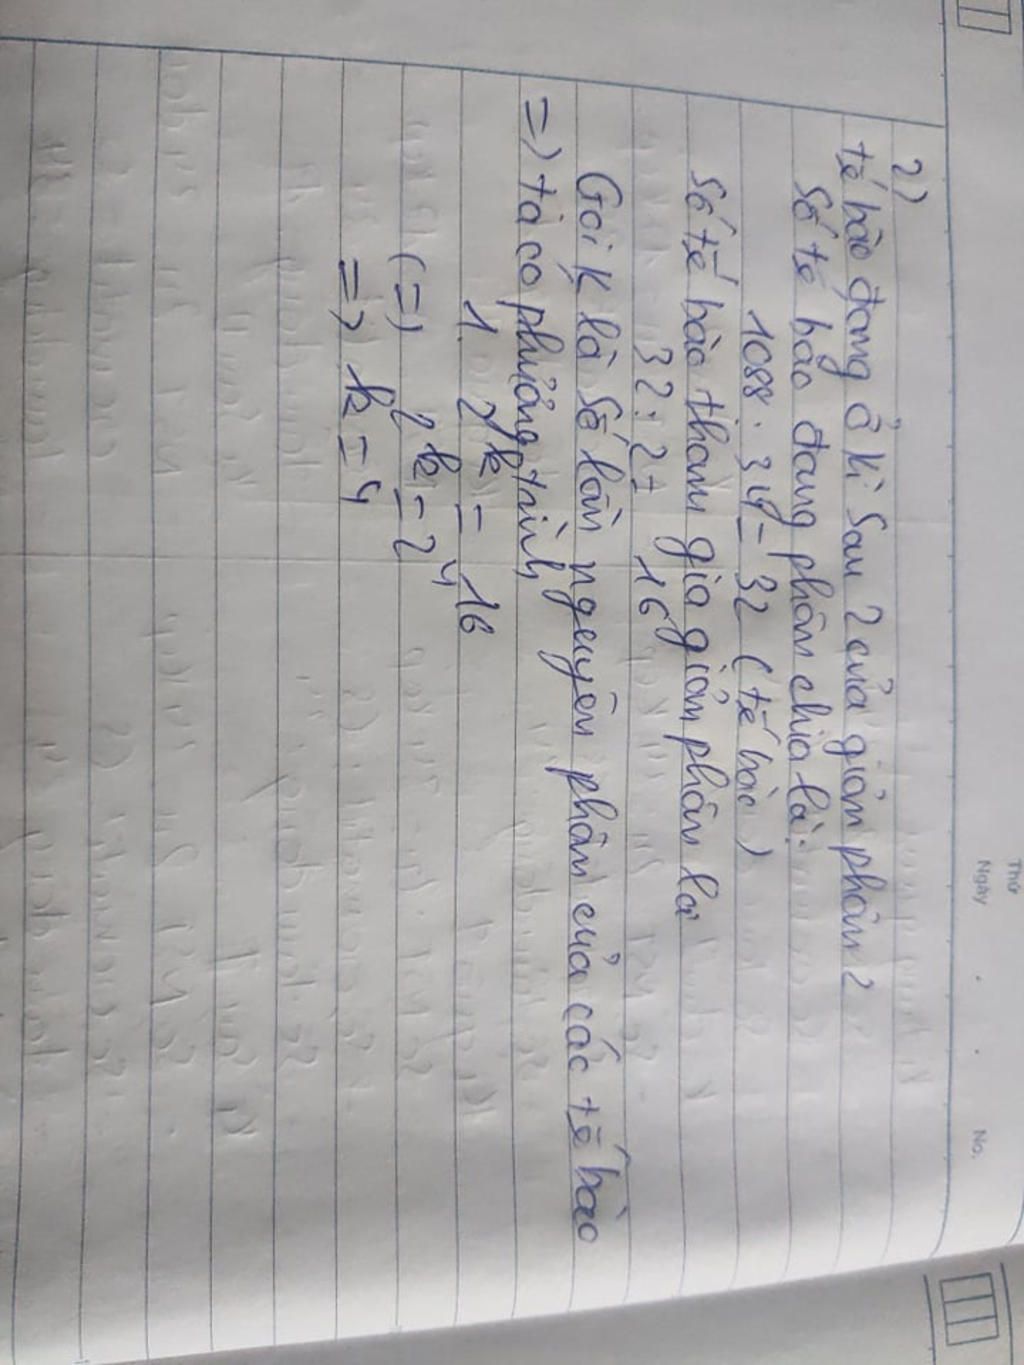 Thứ
Ngày . . No.
2)
tế bào đang ở kì sau 2 của giảm phân 2
Số tế bào đang phân chia là:
1088 : 34 = 32 (tế bào)
Số tế bào tham gia giảm phân là
32 : 2 = 16
Gọi k là số lần nguyên phân của các tế bào
=) ta có phương trình
1. 2^k = 16
(=) 2^k = 2^4
=) k = 4